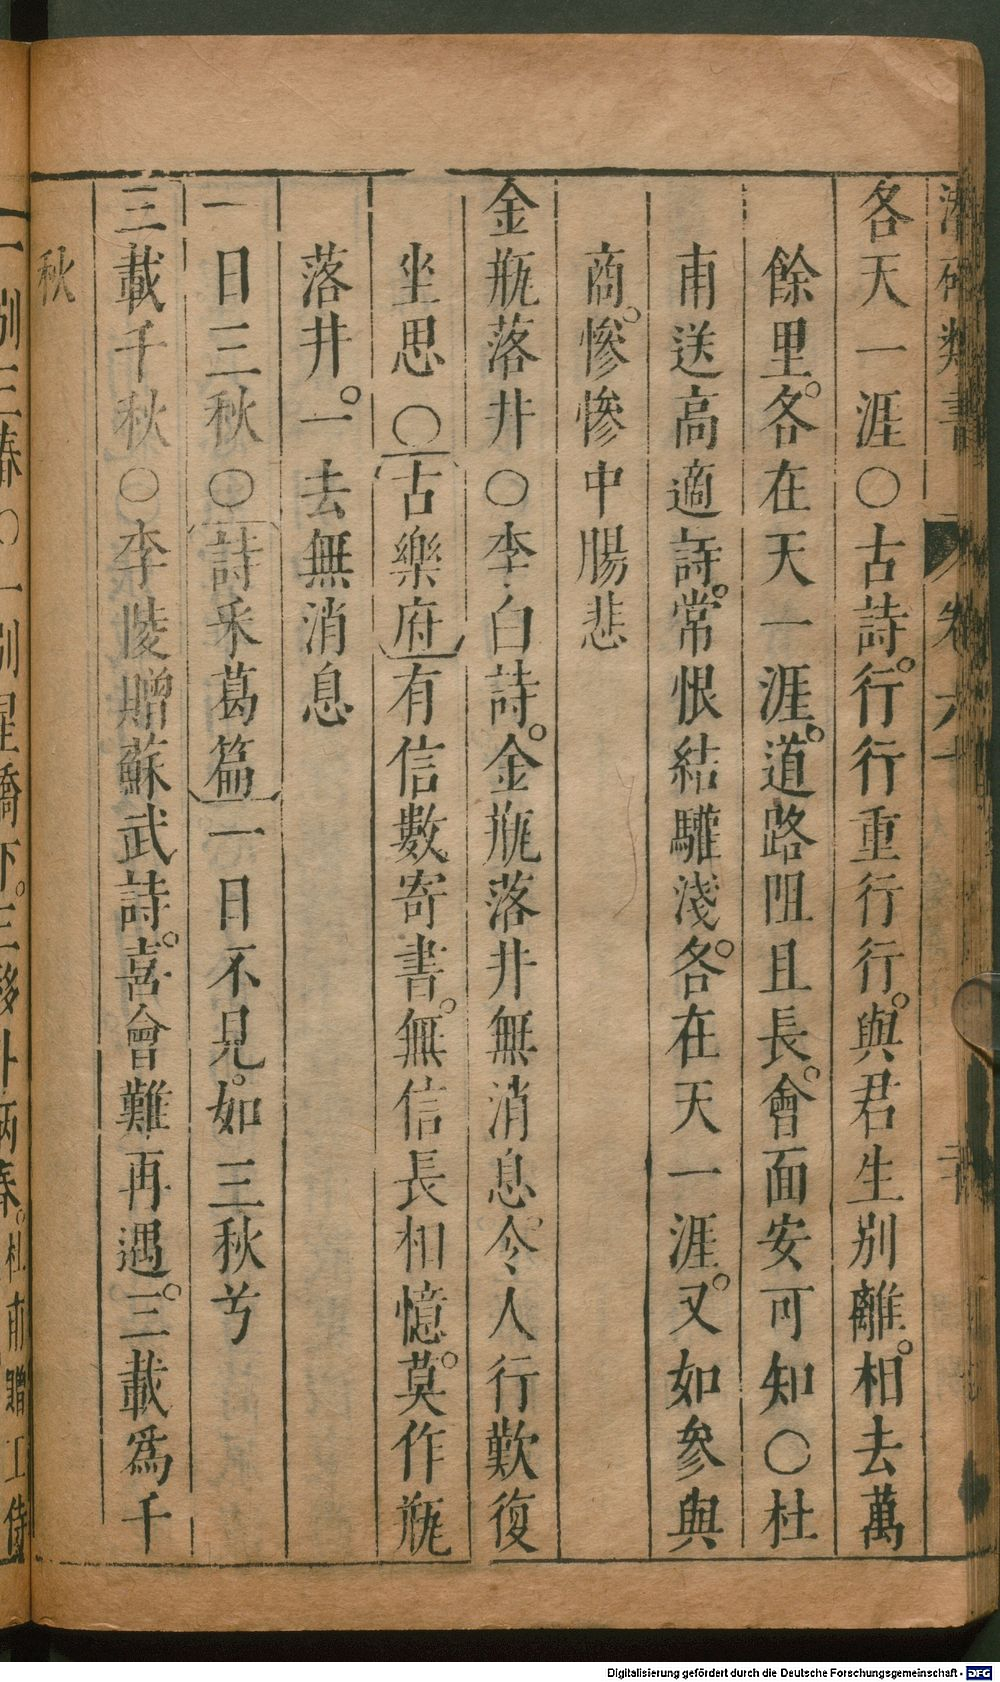 類書 卷六十
各天一涯○古詩。行行重行行。與君生別離。相去萬
餘里。各在天一涯。道路阻且長。會面安可知○杜
甫送高適詩。常恨結驩淺。各在天一涯。又如參與
商。慘慘中腸悲
金瓶落井○李白詩。金瓶落井無消息。令人行歎復
坐思○古樂府有信數寄書。無信長相憶。莫作瓶
落井。一去無消息
一日三秋○詩釆葛篇一日不見。如三秋兮
三載千秋○李陵贈蘇武詩。喜會難再遇。三載爲千
秋
一別三春○一別星橋下。三移斗柄春。杜甫贈王侍
Digitalisierung gefördert durch die Deutsche Forschungsgemeinschaft - DFG